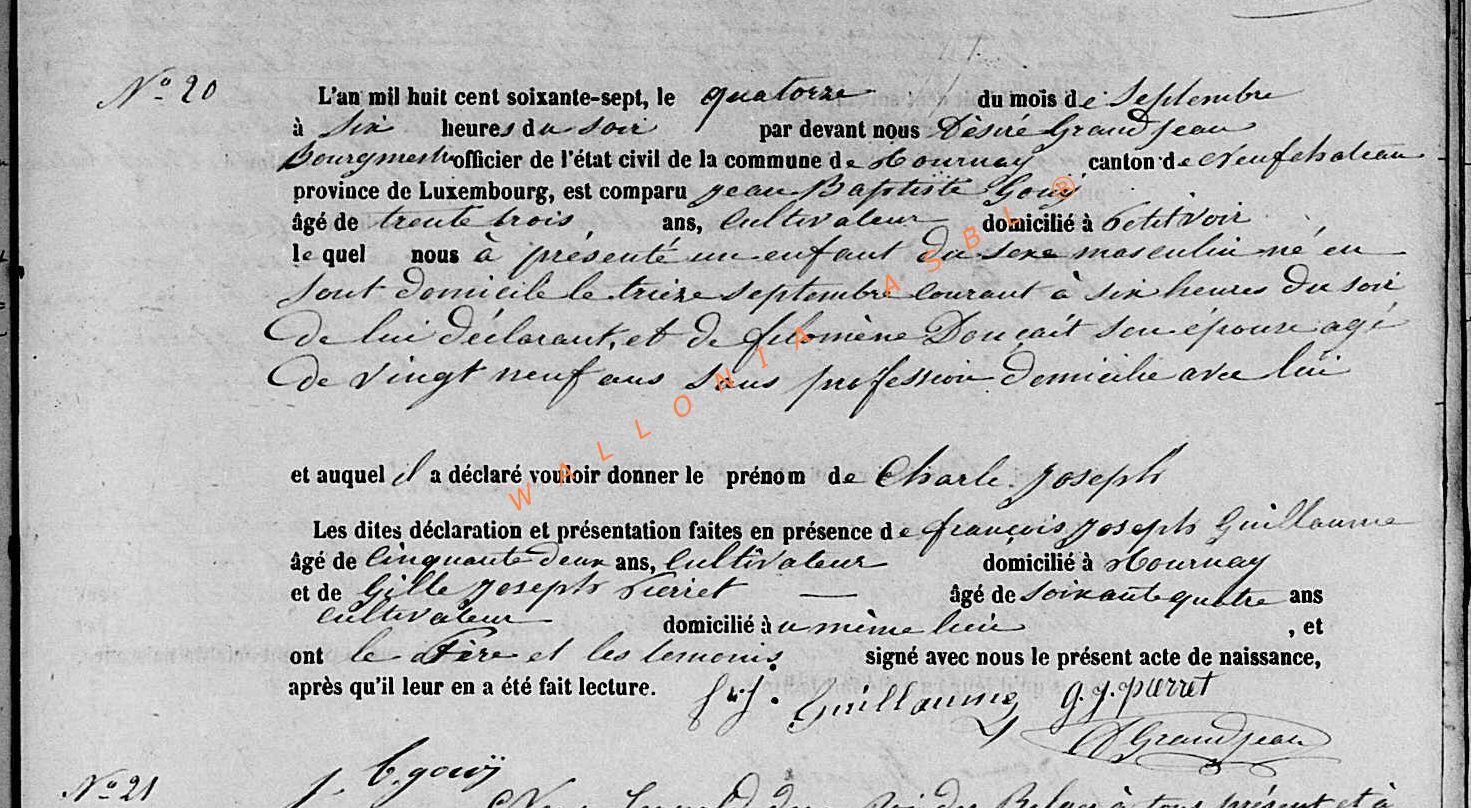 N° 20
L'an mil huit cent soixante-sept, le quatorze du mois de Septembre
à six heures du soir par devant nous Désiré Grandjean
Bourgmestre officier de l'état civil de la commune de Tournay canton de Neufchateau
province de Luxembourg, est comparu Jean Baptiste Gouÿ
âgé de trente trois ans, Cultivateur domicilié à Petitvoir
le quel nous à présenté un enfant du sexe masculin né en
sont domicile le treize septembre courant à six heures du soir
de lui déclarant, et de filomène Douçait son épouse agé
de vingt neuf ans sans profession domicilié avec lui
et auquel il a déclaré vouloir donner le prénom de Charle Joseph
Les dites déclaration et présentation faites en présence de françois Joseph Guillaume
âgé de Cinquante deux ans, Cultivateur domicilié à Tournay
et de Gille Joseph Pierret — âgé de soixante quatre ans
cultivateur domicilié à u même lieu , et
ont le Père et les temouis signé avec nous le présent acte de naissance,
après qu'il leur en a été fait lecture.
f. J. Guillaume g. j. pierret
D Grandjean
j. b. gouÿ
N° 21
Roi des Belges à tous présent et à
WALLONIA ASBL ®